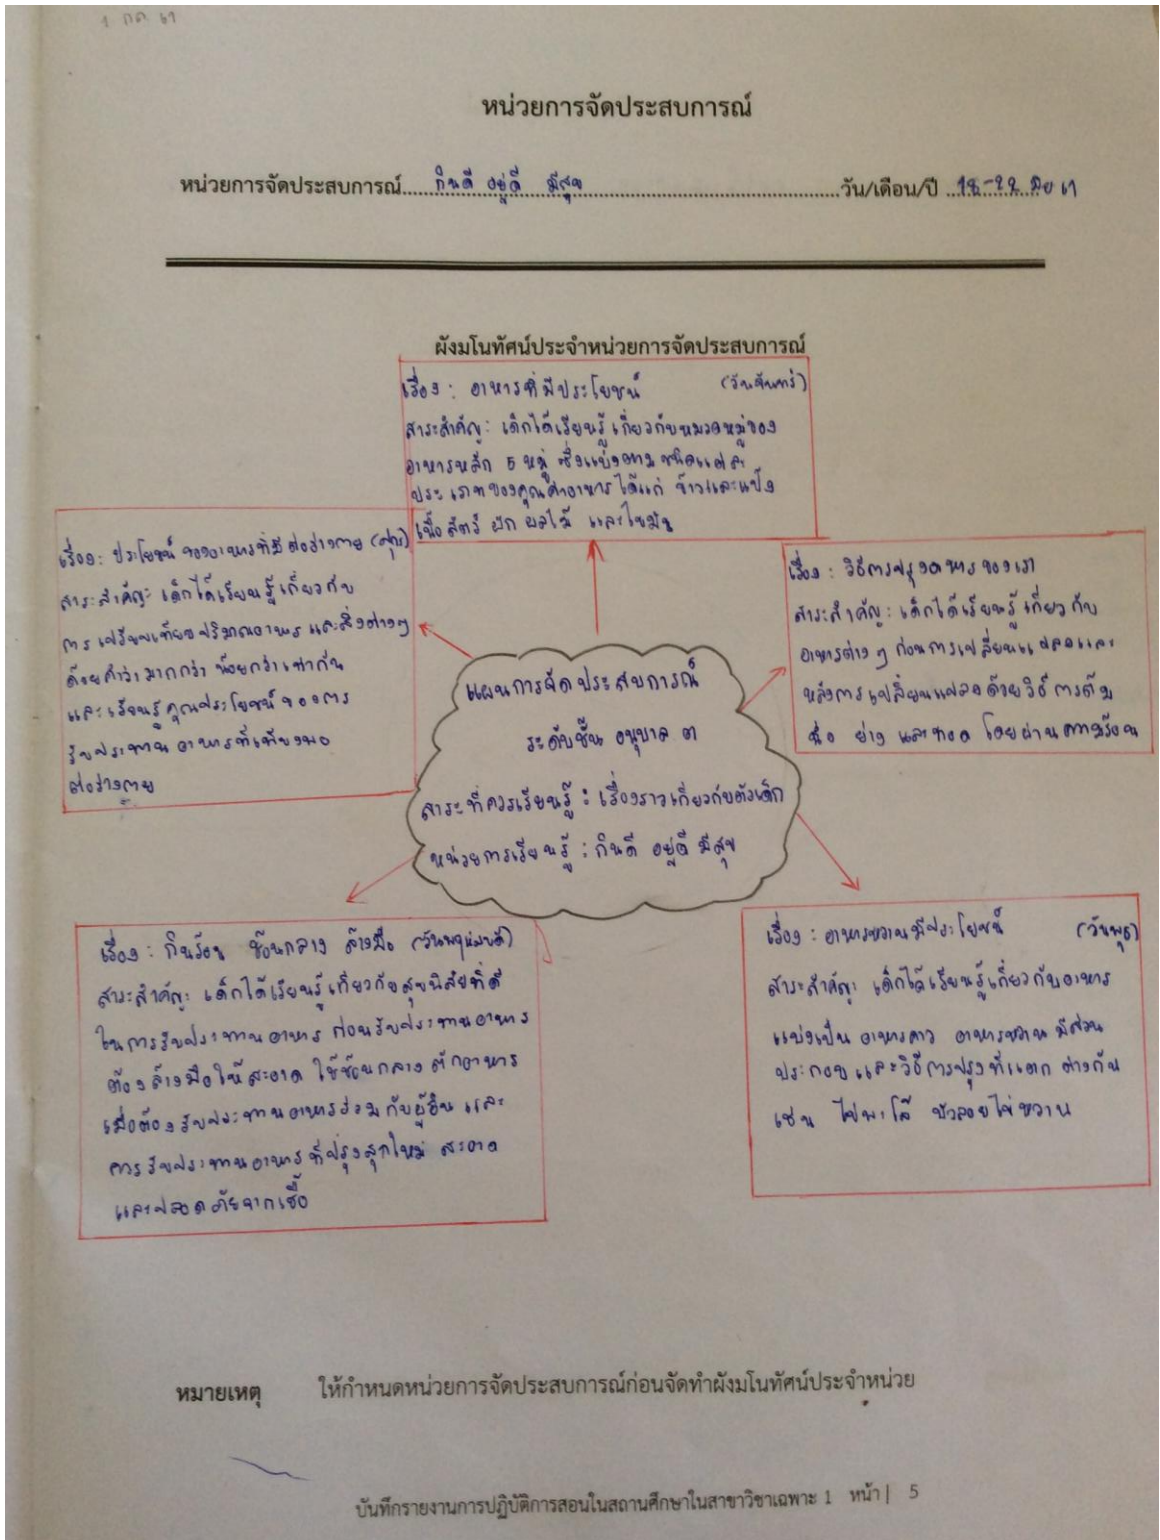 1 กค 61
หน่วยการจัดประสบการณ์
หน่วยการจัดประสบการณ์.....กินดี อยู่ดี มีสุข.....วัน/เดือน/ปี ..18-22 มิย 61
ผังมโนทัศน์ประจำหน่วยการจัดประสบการณ์
เรื่อง : อาหารที่มีประโยชน์ (วันจันทร์)
สาระสำคัญ: เด็กได้เรียนรู้เกี่ยวกับหมวดหมู่ของ
อาหารหลัก 5 หมู่ ซึ่งแบ่งตามชนิดและ
ประเภทของคุณค่าอาหารได้แก่ ข้าวและแป้ง
เนื้อสัตว์ ผัก ผลไม้ และไขมัน
เรื่อง: ประโยชน์ของอาหารที่มีต่อร่างกาย (ศุกร์)
สาระสำคัญ: เด็กได้เรียนรู้เกี่ยวกับ
การเปรียบเทียบปริมาณอาหาร และสิ่งต่างๆ
ด้วยคำว่ามากกว่า น้อยกว่าเท่ากัน
และเรียนรู้คุณประโยชน์ของการ
รับประทานอาหารที่เพียงพอ
ต่อร่างกาย
เรื่อง : วิธีการปรุงอาหารของเรา
สาระสำคัญ: เด็กได้เรียนรู้เกี่ยวกับ
อาหารต่างๆ ก่อนการเปลี่ยนแปลงและ
หลังการเปลี่ยนแปลงด้วยวิธีการต้ม
นึ่ง ย่าง และทอด โดยผ่านความร้อน
แผนการจัดประสบการณ์
ระดับชั้น อนุบาล ๓
สาระที่ควรเรียนรู้ : เรื่องราวเกี่ยวกับตัวเด็ก
หน่วยการเรียนรู้ : กินดี อยู่ดี มีสุข
เรื่อง : กินร้อน ช้อนกลาง ล้างมือ (วันพฤหัสบดี)
สาระสำคัญ: เด็กได้เรียนรู้เกี่ยวกับสุขนิสัยที่ดี
ในการรับประทานอาหาร ก่อนรับประทานอาหาร
ต้องล้างมือให้สะอาด ใช้ช้อนกลางตักอาหาร
เมื่อต้องรับประทานอาหารร่วมกับผู้อื่น และ
ควรรับประทานอาหารที่ปรุงสุกใหม่ สะอาด
และปลอดภัยจากเชื้อ
เรื่อง : อาหารหวานมีประโยชน์ (วันพุธ)
สาระสำคัญ: เด็กได้เรียนรู้เกี่ยวกับอาหาร
แบ่งเป็น อาหารคาว อาหารหวาน มีส่วน
ประกอบและวิธีการปรุงที่แตกต่างกัน
เช่น ไข่พะโล้ บัวลอยไข่หวาน
หมายเหตุ ให้กำหนดหน่วยการจัดประสบการณ์ก่อนจัดทำผังมโนทัศน์ประจำหน่วย
บันทึกรายงานการปฏิบัติการสอนในสถานศึกษาในสาขาวิชาเฉพาะ 1 หน้า | 5